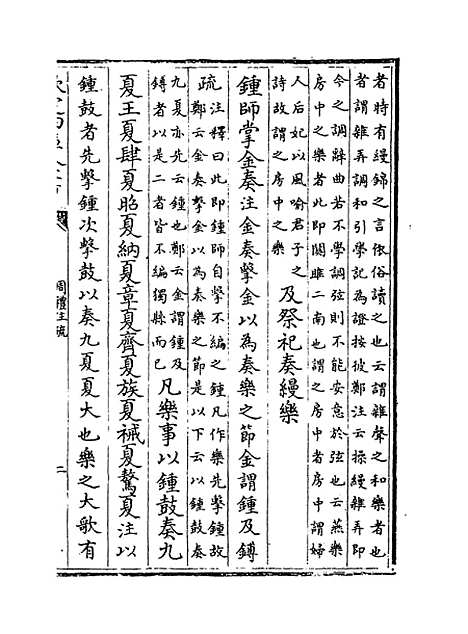 者時有縵錦之言依俗讀之也云謂雜聲之和樂者也
者謂雜弄調和引學記為證按彼鄭注云操縵雜弄即
今之調辭曲若不學調弦則不能安意於弦也云燕樂
房中之樂者此即關雎二南也謂之房中者房中謂婦
人后妃以風喻君子之
詩故謂之房中之樂
及祭祀奏縵樂
鍾師掌金奏注金奏擊金以為奏樂之節金謂鍾及鎛
疏
注釋曰此即鍾師自擊不編之鍾凡作樂先擊鍾故
鄭云金奏擊金以為奏樂之節是以下云以鍾鼓奏
九夏亦先云鍾也鄭云金謂鍾及
鎛者以是二者皆不編獨縣而已
凡樂事以鍾鼓奏九
夏王夏肆夏昭夏納夏章夏齊夏族夏祴夏驁夏注以
鍾鼓者先擊鍾次擊鼓以奏九夏夏大也樂之大歌有
周禮注疏
二